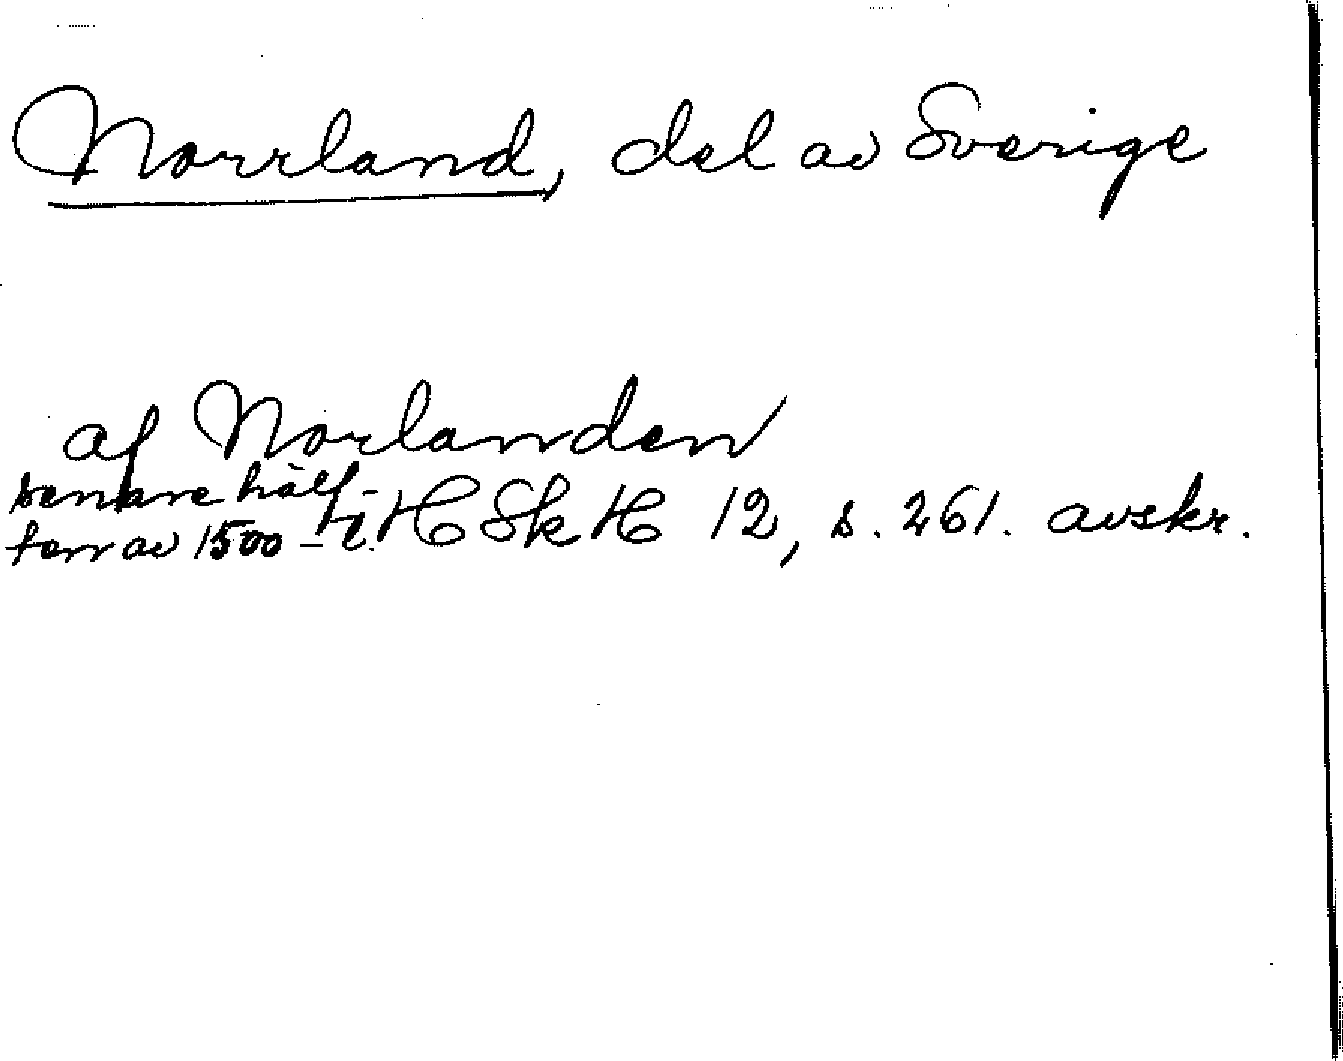 Norrland, del av Sverige
af Norlanden
senare hälf-
ten av 1500-t. HSkH 12, s. 261. avskr.